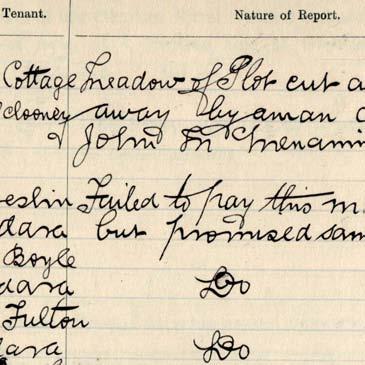 Tenant. Nature of Report.
Cottage Meadow of Plot cut a
clooney away by a man c
& John Mc Menami
eslin Failed to pay this m
dara but promised sam
Boyle
dara Do
Fulton
dara Do